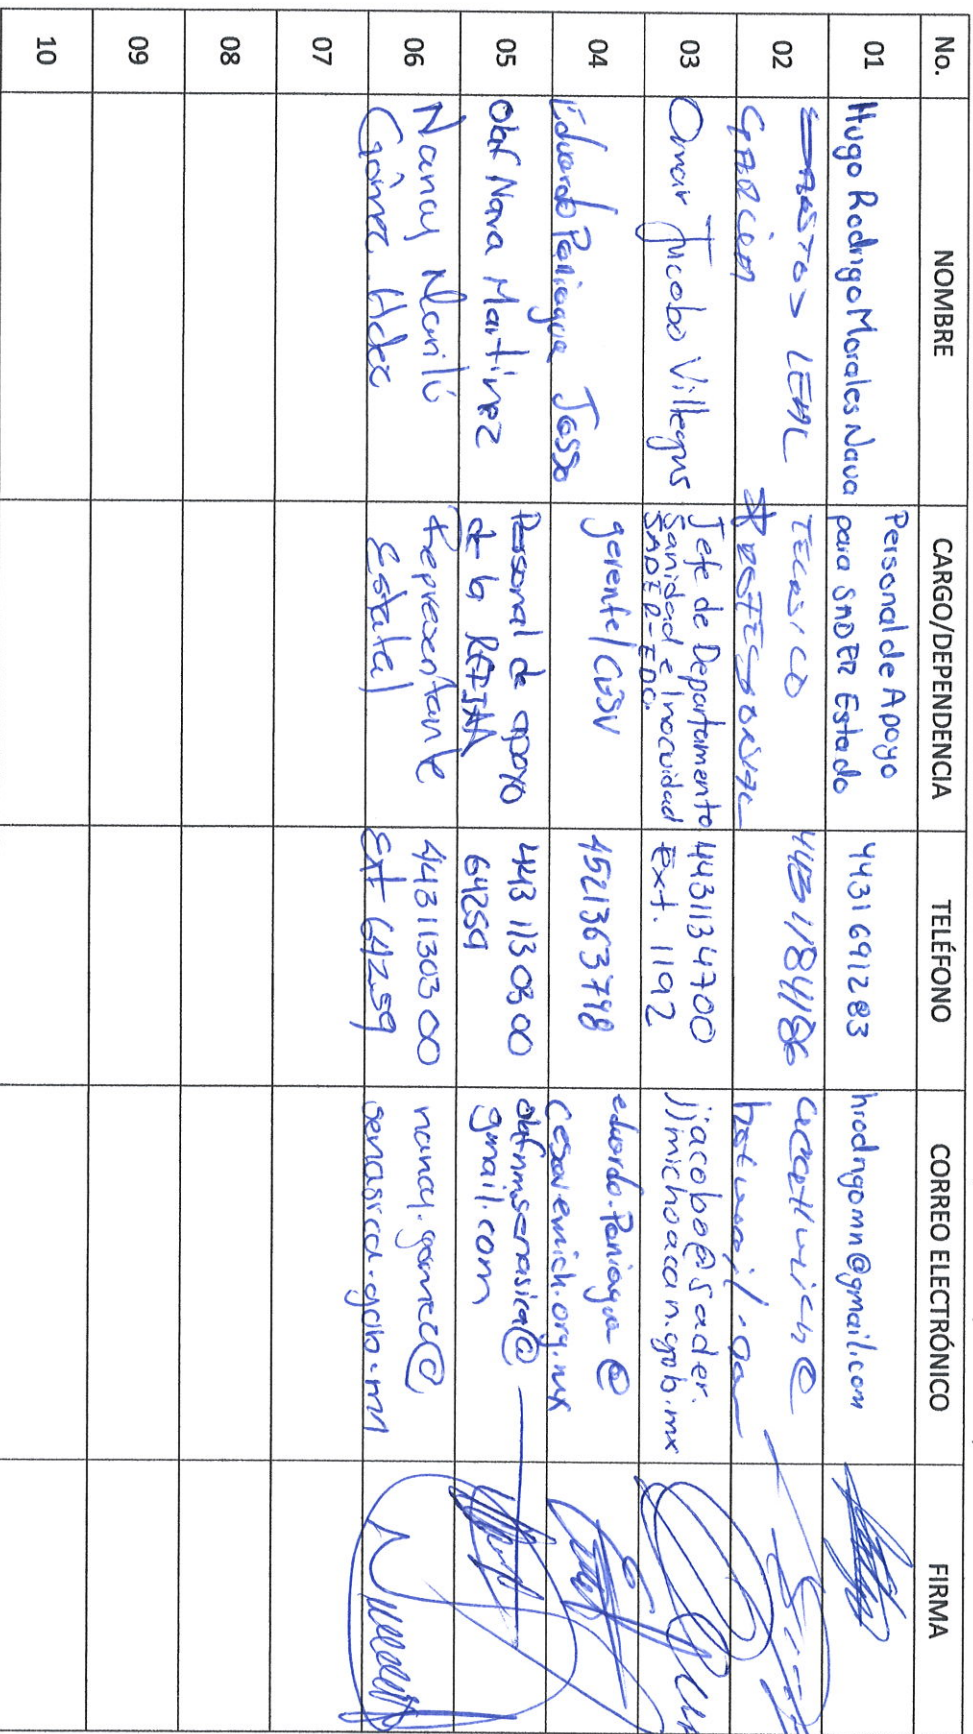 No. NOMBRE CARGO/DEPENDENCIA TELÉFONO CORREO ELECTRÓNICO FIRMA
01 Hugo Rodrigo Morales Nava
Personal de Apoyo
para SADER Estado
4431691283
hrodrigomn@gmail.com
02
LEAL
GARCIA
TECNICO
4431184186
03 Omar Jacobo Villegas
Jefe de Departamento
Sanidad e Inocuidad
SADER-EDO.
4431134700
Ext. 1192
jjacobo@sader.
michoacan.gob.mx
04 Eduardo Paniagua Jasso
gerente/CESV
4521363798
eduardo.Paniagua@
cesavemich.org.mx
05 Olaf Nava Martinez
Personal de apoyo
de la REFIAA
443 11303 00
64259
olafnmsenasica@
gmail.com
06 Nancy Marilú
Gómez Hdez
Representante
Estatal
443 11303 00
Ext 64259
nancy.gomez@
senasica.gob.mx
07
08
09
10